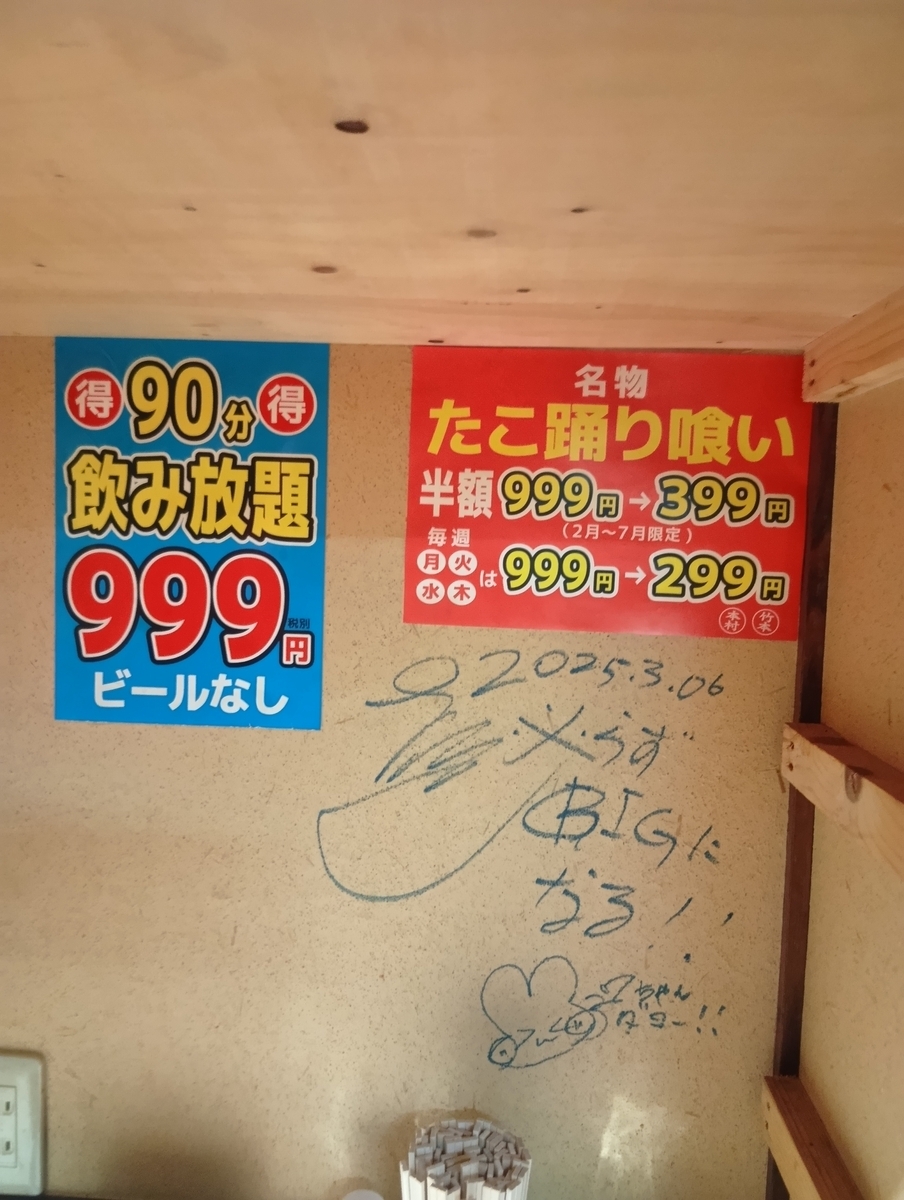 得 90分 得
飲み放題
999円
税別
ビールなし
名物
たこ踊り喰い
半額 999円→399円
（2月〜7月限定）
毎週
月火
水木
は999円→299円
木村 竹本
2025.3.06
必らず
BIGに
なる!!
ちゃん
ダヨー!!